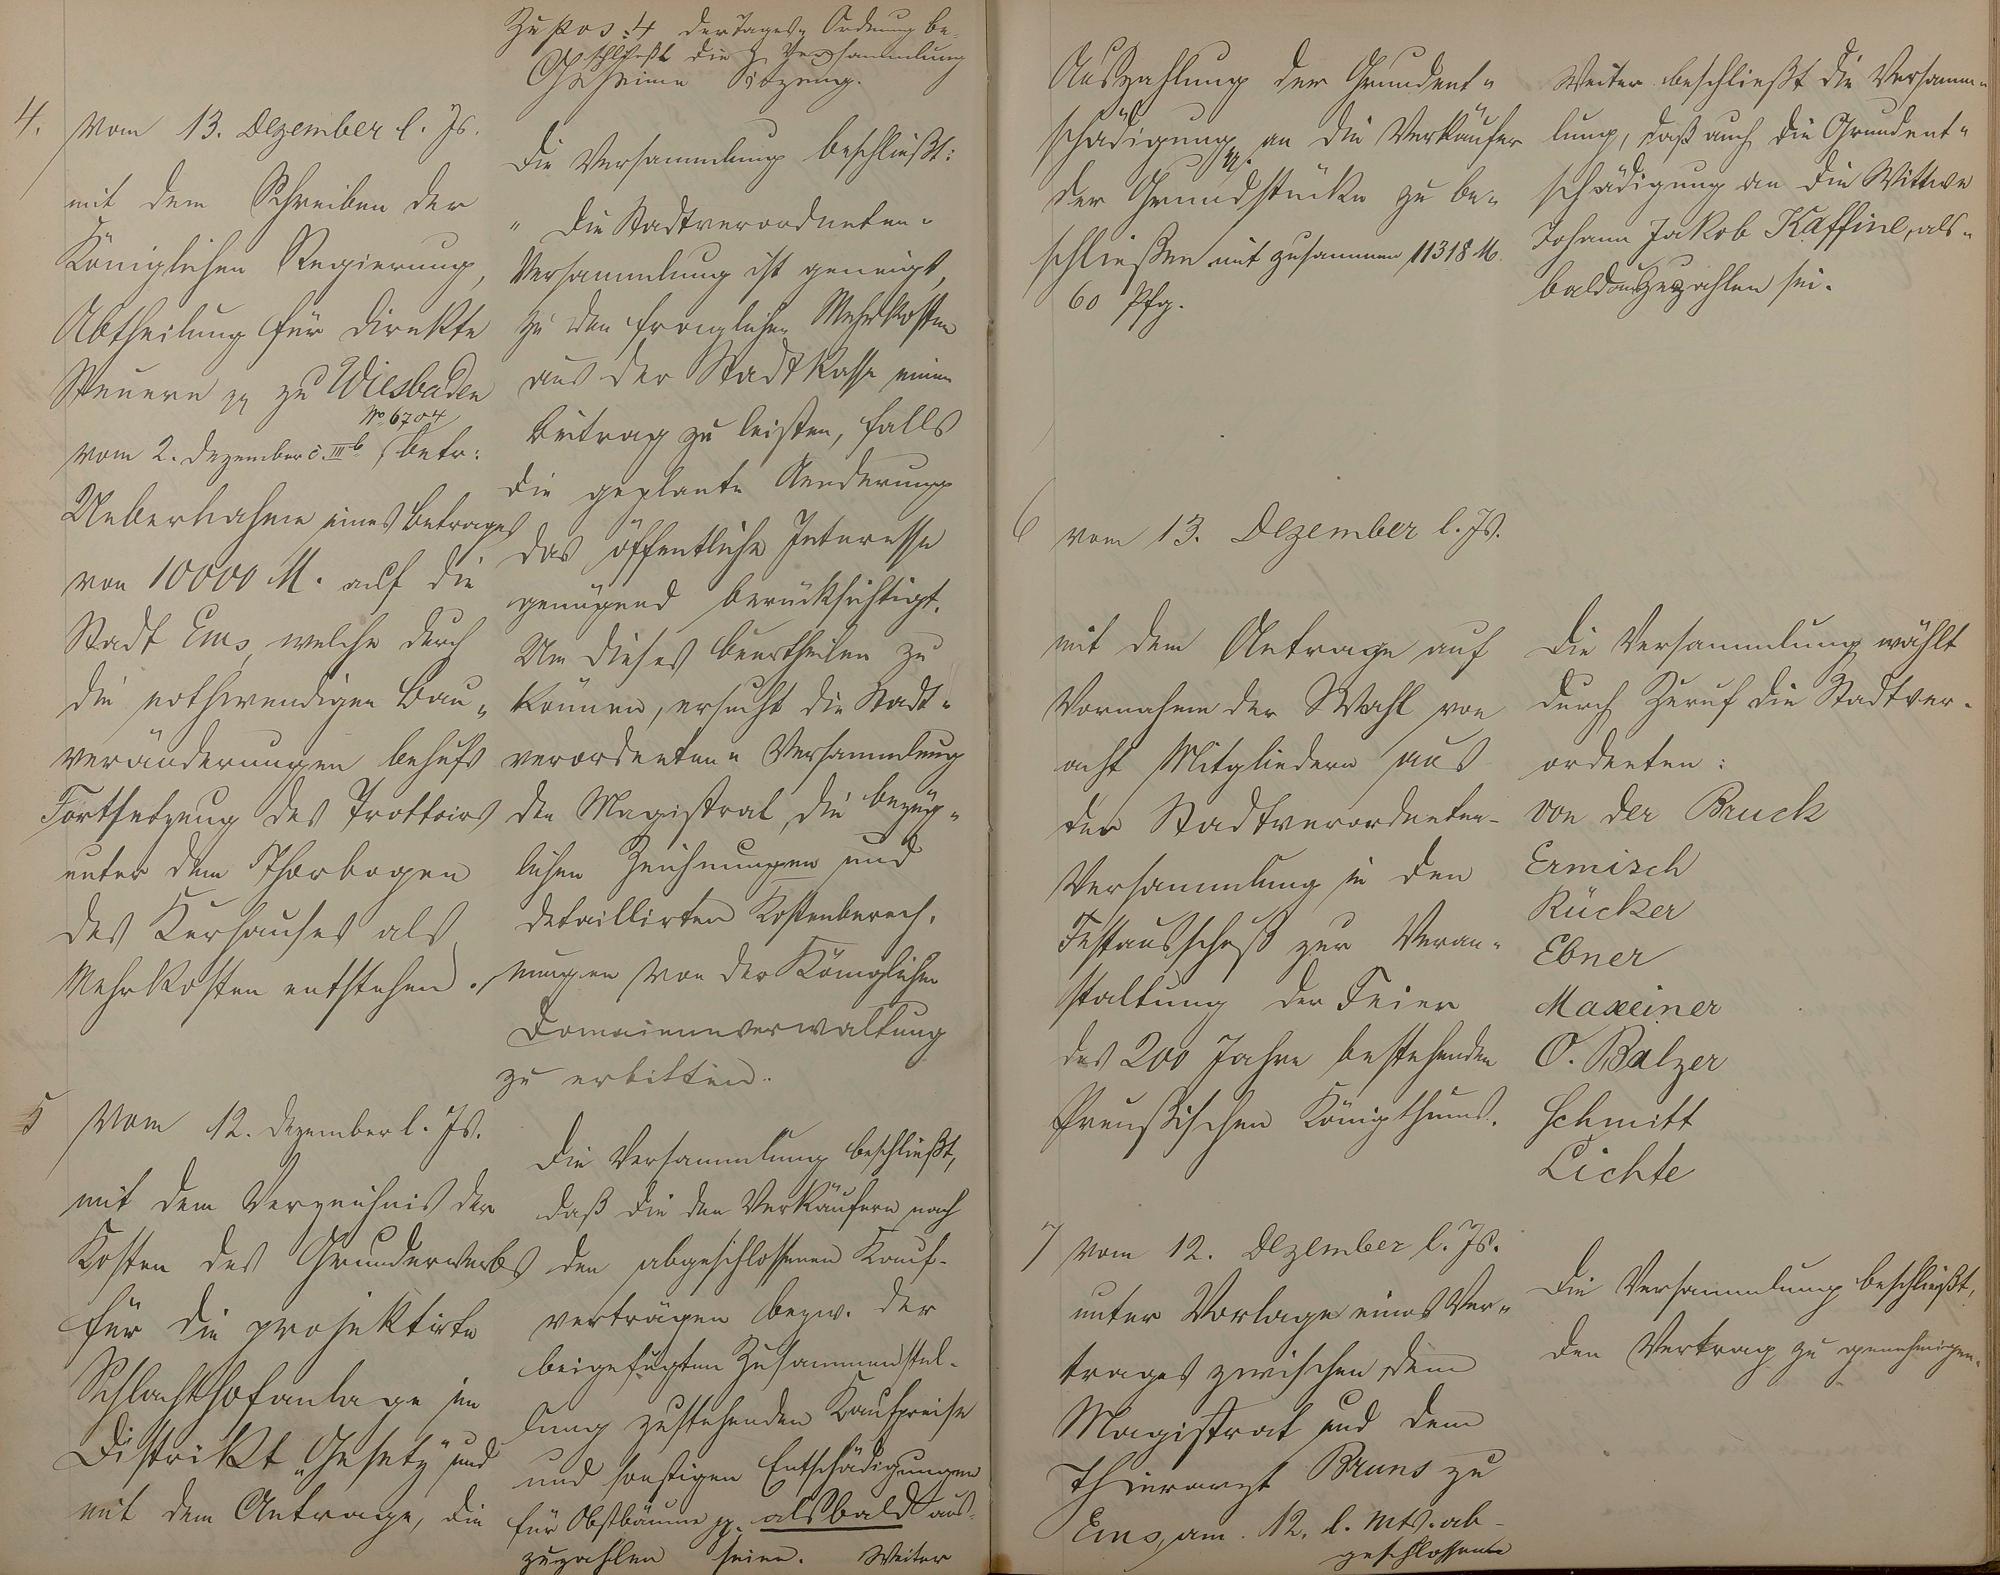 Zu Pos: 4 der Tages-Ordnung be-
schließt die Versammlung
Geheime Sitzung.
4. Vom 13. Dezember l. Js.
mit dem Schreiben der
Königlichen Regierung,
Abtheilung für direkte
Steuern pp zu Wiesbaden
No 6704
vom 2. Dezember c. III b betr:
Uebernahme eines Betrages
von 10000 M. auf die
Stadt Ems, welche durch
die nothwendigen Bau-
veränderungen behufs
Fortsetzung des Trottoirs
unter dem Thorbogen
des Kurhauses als
Mehrkosten entstehen.
Die Versammlung beschließt:
" Die Stadtverordneten-
Versammlung ist geneigt,
zu den fraglichen Mehrkosten
aus der Stadtkasse einen
Beitrag zu leisten, falls
die geplante Aenderung
das öffentliche Interesse
genügend berücksichtigt.
Um dieses beurtheilen zu
können, ersucht die Stadt-
verordneten-Versammlung
den Magistrat, die bezüg-
lichen Zeichnungen und
detaillirten Kostenberech-
nungen von der Königlichen
Domainenverwaltung
zu erbitten.
5 Vom 12. Dezember l. Js.
mit dem Verzeichnis der
Kosten des Grunderwerbs
für die projektirte
Schlachthofanlage im
Distrikt „Gesetz" und
mit dem Antrage, die
Die Versammlung beschließt,
daß die den Verkäufern nach
den abgeschlossenen Kauf-
verträgen bezw. der
beigefügten Zusammenstel-
lung zustehenden Kaufpreise
und sonstigen Entschädigungen
für Obstbäume pp. alsbald aus-
zuzahlen seien. Weiter
Auszahlung der Grundent-
schädigung pp. an die Verkäufer
der Grundstücke zu be-
schließen mit zusammen 11318 M.
60 Pfg.
Weiter beschließt die Versamm-
lung, daß auch die Grundent-
schädigung an die Wittwe
Johann Jakob Kaffine, als-
bald auszuzahlen sei.
6 vom 13. Dezember l. Js.
mit dem Antrage auf
Vornahme der Wahl von
acht Mitgliedern aus
der Stadtverordneten-
Versammlung in den
Festausschuß zur Veran-
staltung der Feier
des 200 Jahre bestehenden
Preußischen Königthums.
Die Versammlung wählt
durch Zuruf die Stadtver-
ordneten:
von der Bruck
Ermisch
Rücker
Ebner
Maxeiner
O. Balzer
Schmitt
Lichte
7 vom 12. Dezember l. Js.
unter Vorlage eines Ver-
trages zwischen dem
Magistrat und dem
Thierarzt Bruns zu
Ems, am 12. l. Mts. ab-
geschlossen
Die Versammlung beschließt,
den Vertrag zu genehmigen.